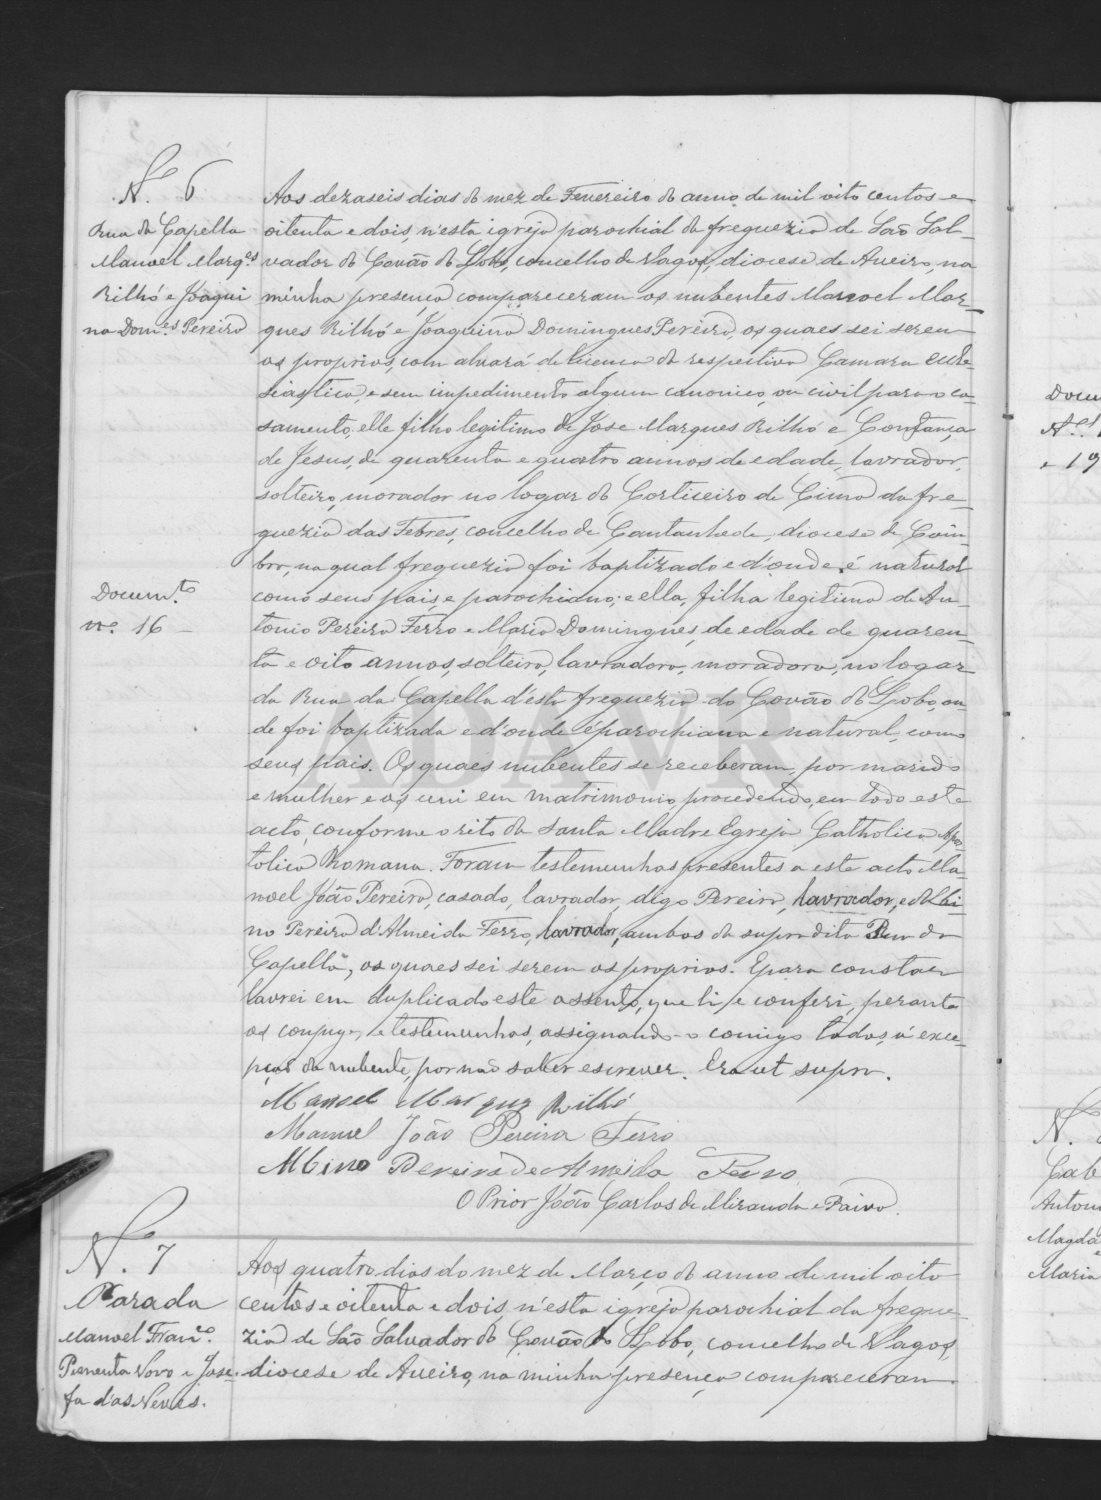 N.º 6
Rua da Capella
Manoel Marq.es
Rilhó e Joaqui
na Dom.es Pereira
Aos dezaseis dias do mez de Fevereiro do anno de mil oito centos e
oitenta e dois, n'esta igreja parochial da freguezia de São Sal-
vador do Covão do Lobo, concelho de Vagos, diocese de Aveiro, na
minha presença compareceram os nubentes Manoel Mar-
ques Rilhó e Joaquina Domingues Pereira, os quaes sei serem
os proprios, com alvará de licença da respectiva Camara Eccle-
siastica, e sem impedimento algum canonico, ou civil para o ca-
samento; elle filho legitimo de Jose Marques Rilhó e Constança
de Jesus, de quarenta e quatro annos de edade, lavrador,
solteiro, morador no logar do Corticeiro de Cima da fre-
guezia das Febres, concelho de Cantanhede, diocese de Coim-
bra, na qual freguezia foi baptizado e d'onde é natural
como seus pais, e parochiano; e ella, filha legitima de An-
tonio Pereira Ferro e Maria Domingues, de edade de quaren-
ta e oito annos, solteira, lavradora, moradora, no logar
da Rua da Capella d'esta freguezia do Covão do Lobo, on-
de foi baptizada e d'onde é parochiana e natural, como
seus pais. Os quaes nubentes se receberam, por marido
e mulher e os uni em matrimonio, procedendo, em todo este
acto, conforme o rito da Santa Madre Egreja Catholica Apos-
tolica Romana. Foram testemunhas presentes a este acto Ma-
noel João Pereira, casado, lavrador, digo Pereira, lavrador, e Albi-
no Pereira d'Almeida Ferro, lavrador, ambos da supradita Rua da
Capella, os quaes sei serem os proprios. E para constar
lavrei em duplicado este assento, que li e conferi, perante
os conjuges e testemunhas, assignando-o comigo todos, á exce-
pção da nubente, por não saber escrever. Era ut supra.
Documt.to
n.º 16
Manoel Marques Rilhó
Manuel João Pereira Ferro
Albino Pereira de Almeida Ferro
O Prior João Carlos de Miranda e Paiva.
N.º 7
Parada
Manoel Fran.co
Pimenta Novo e Jose-
fa das Neves.
Aos quatro dias do mez de Março do anno de mil oito
centos e oitenta e dois, n'esta igreja parochial da fregue-
zia de São Salvador do Covão do Lobo, concelho de Vagos,
diocese de Aveiro, na minha presença compareceram
Docum
e 19
N.
Cab
Anton
Magda
Maria
ADAVR